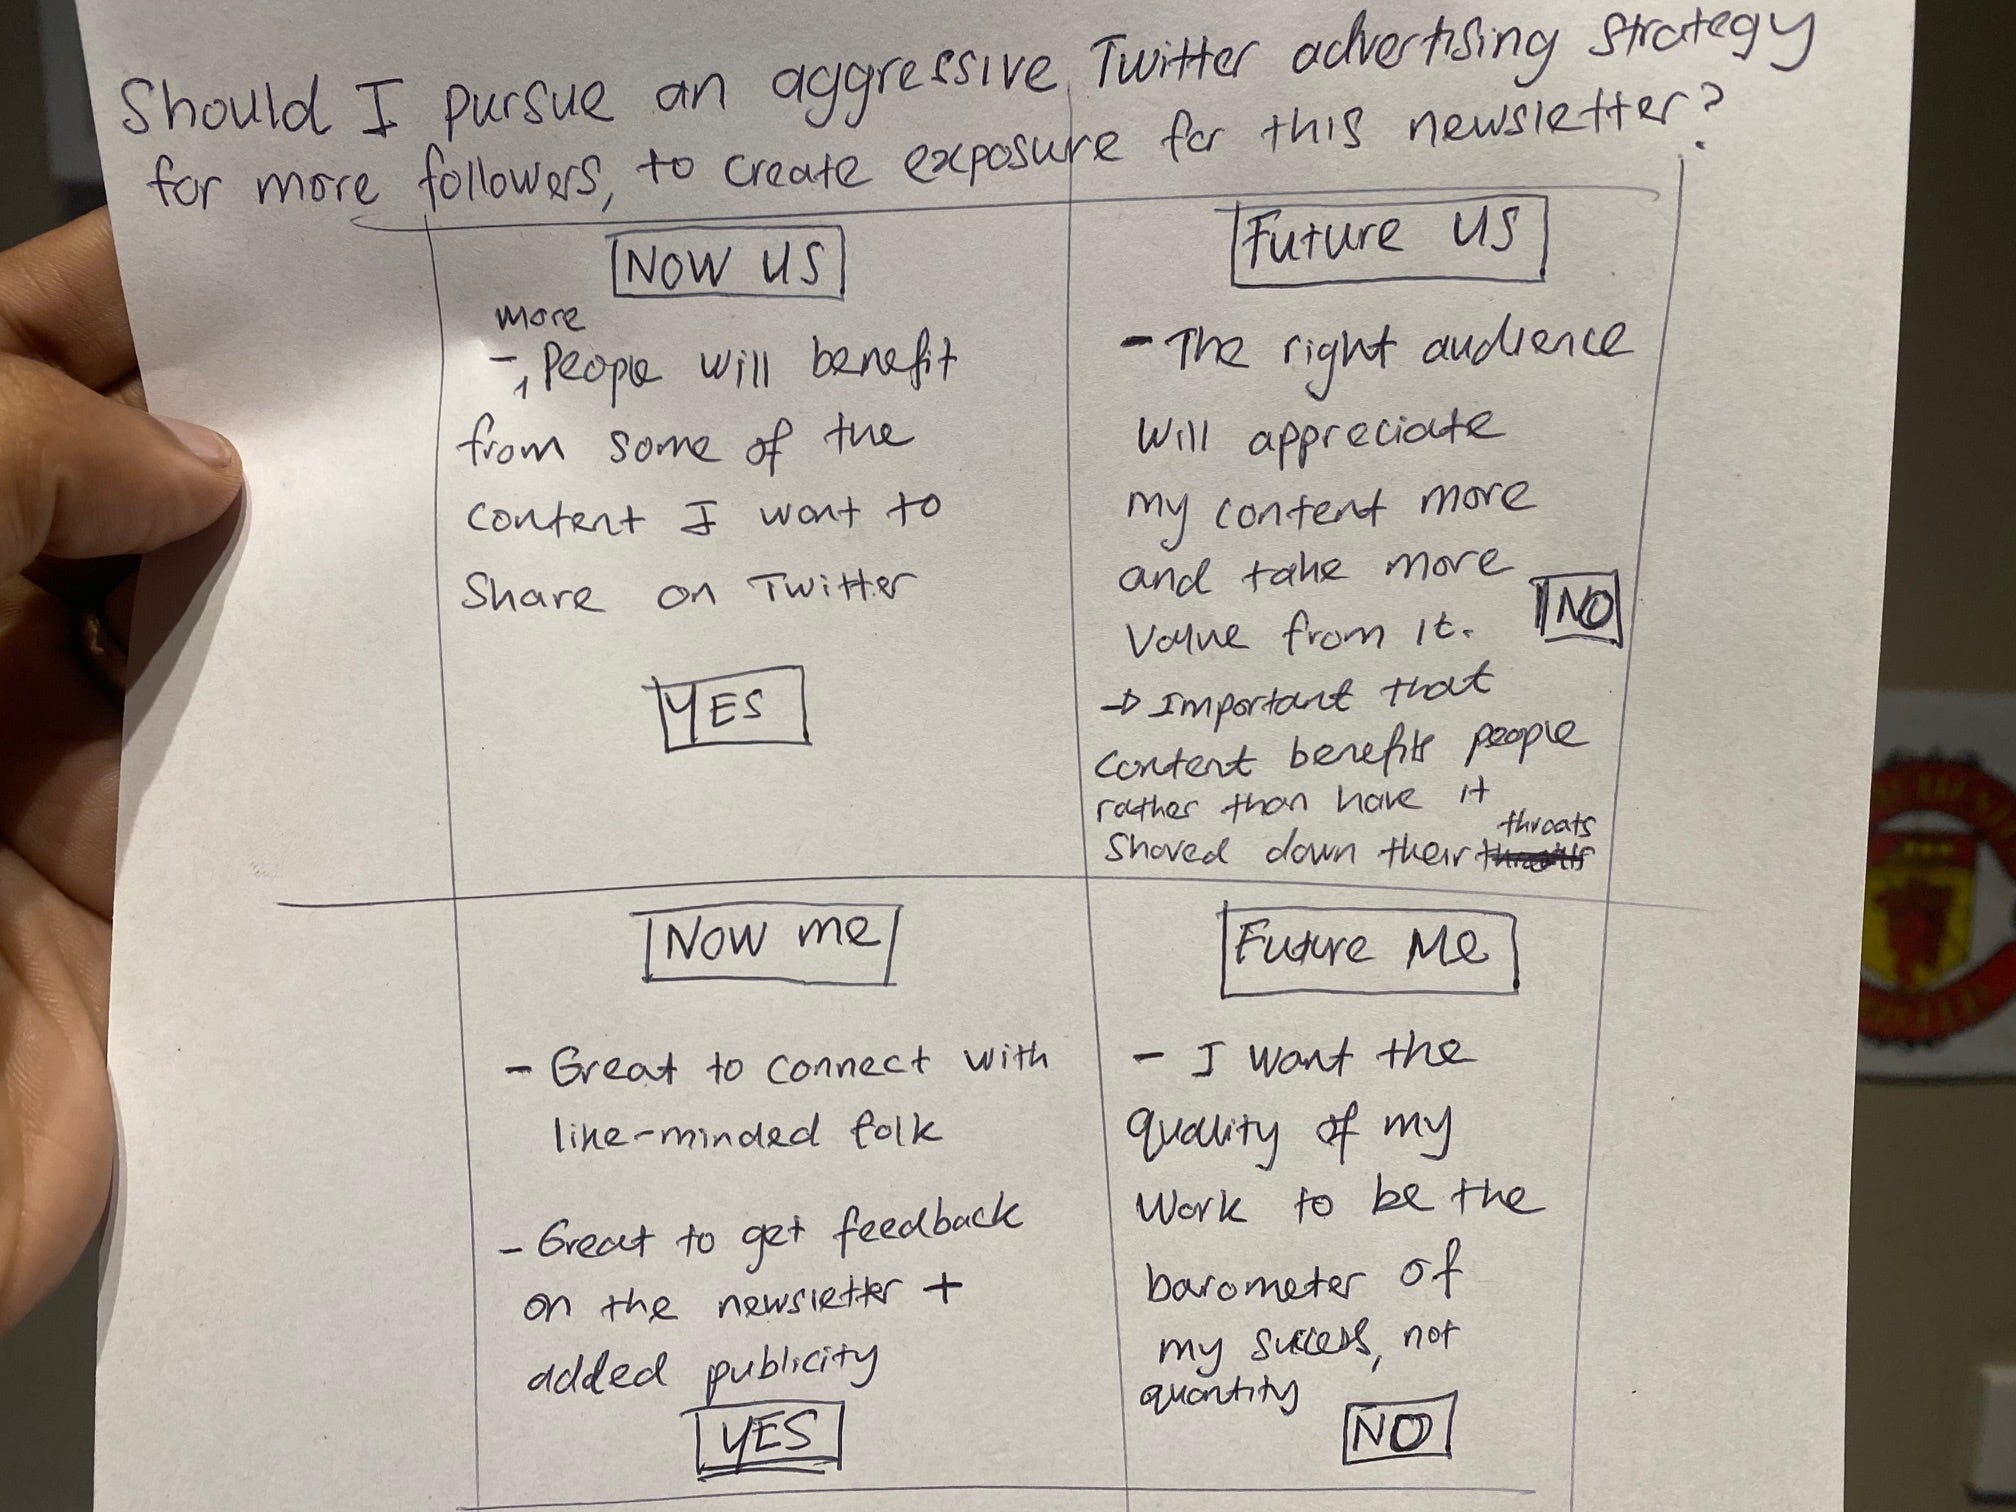 Should I pursue an aggressive Twitter advertising strategy
for more followers, to create exposure for this newsletter?
NOW US
more
- People will benefit
from some of the
content I want to
Share on Twitter
YES
Future US
- The right audience
will appreciate
my content more
and take more
value from it.
NO
→ Important that
content benefits people
rather than have it
throats
Shoved down their
NOW me
- Great to connect with
like-minded folk
- Great to get feedback
on the newsletter +
added publicity
YES
Future Me
- I want the
quality of my
work to be the
barometer of
my success, not
quantity
NO